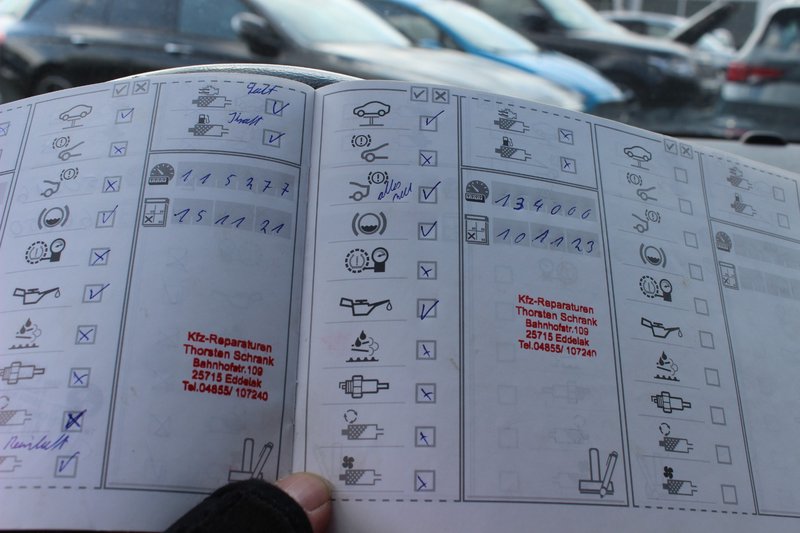 Luft
115277
151121
Kfz-Reparaturen
Thorsten Schrank
Bahnhofstr.109
25715 Eddelak
Tel.04855/ 107240
alles
neu
134000
101123
Kfz-Reparaturen
Thorsten Schrank
Bahnhofstr.109
25715 Eddelak
Tel.04855/ 107240